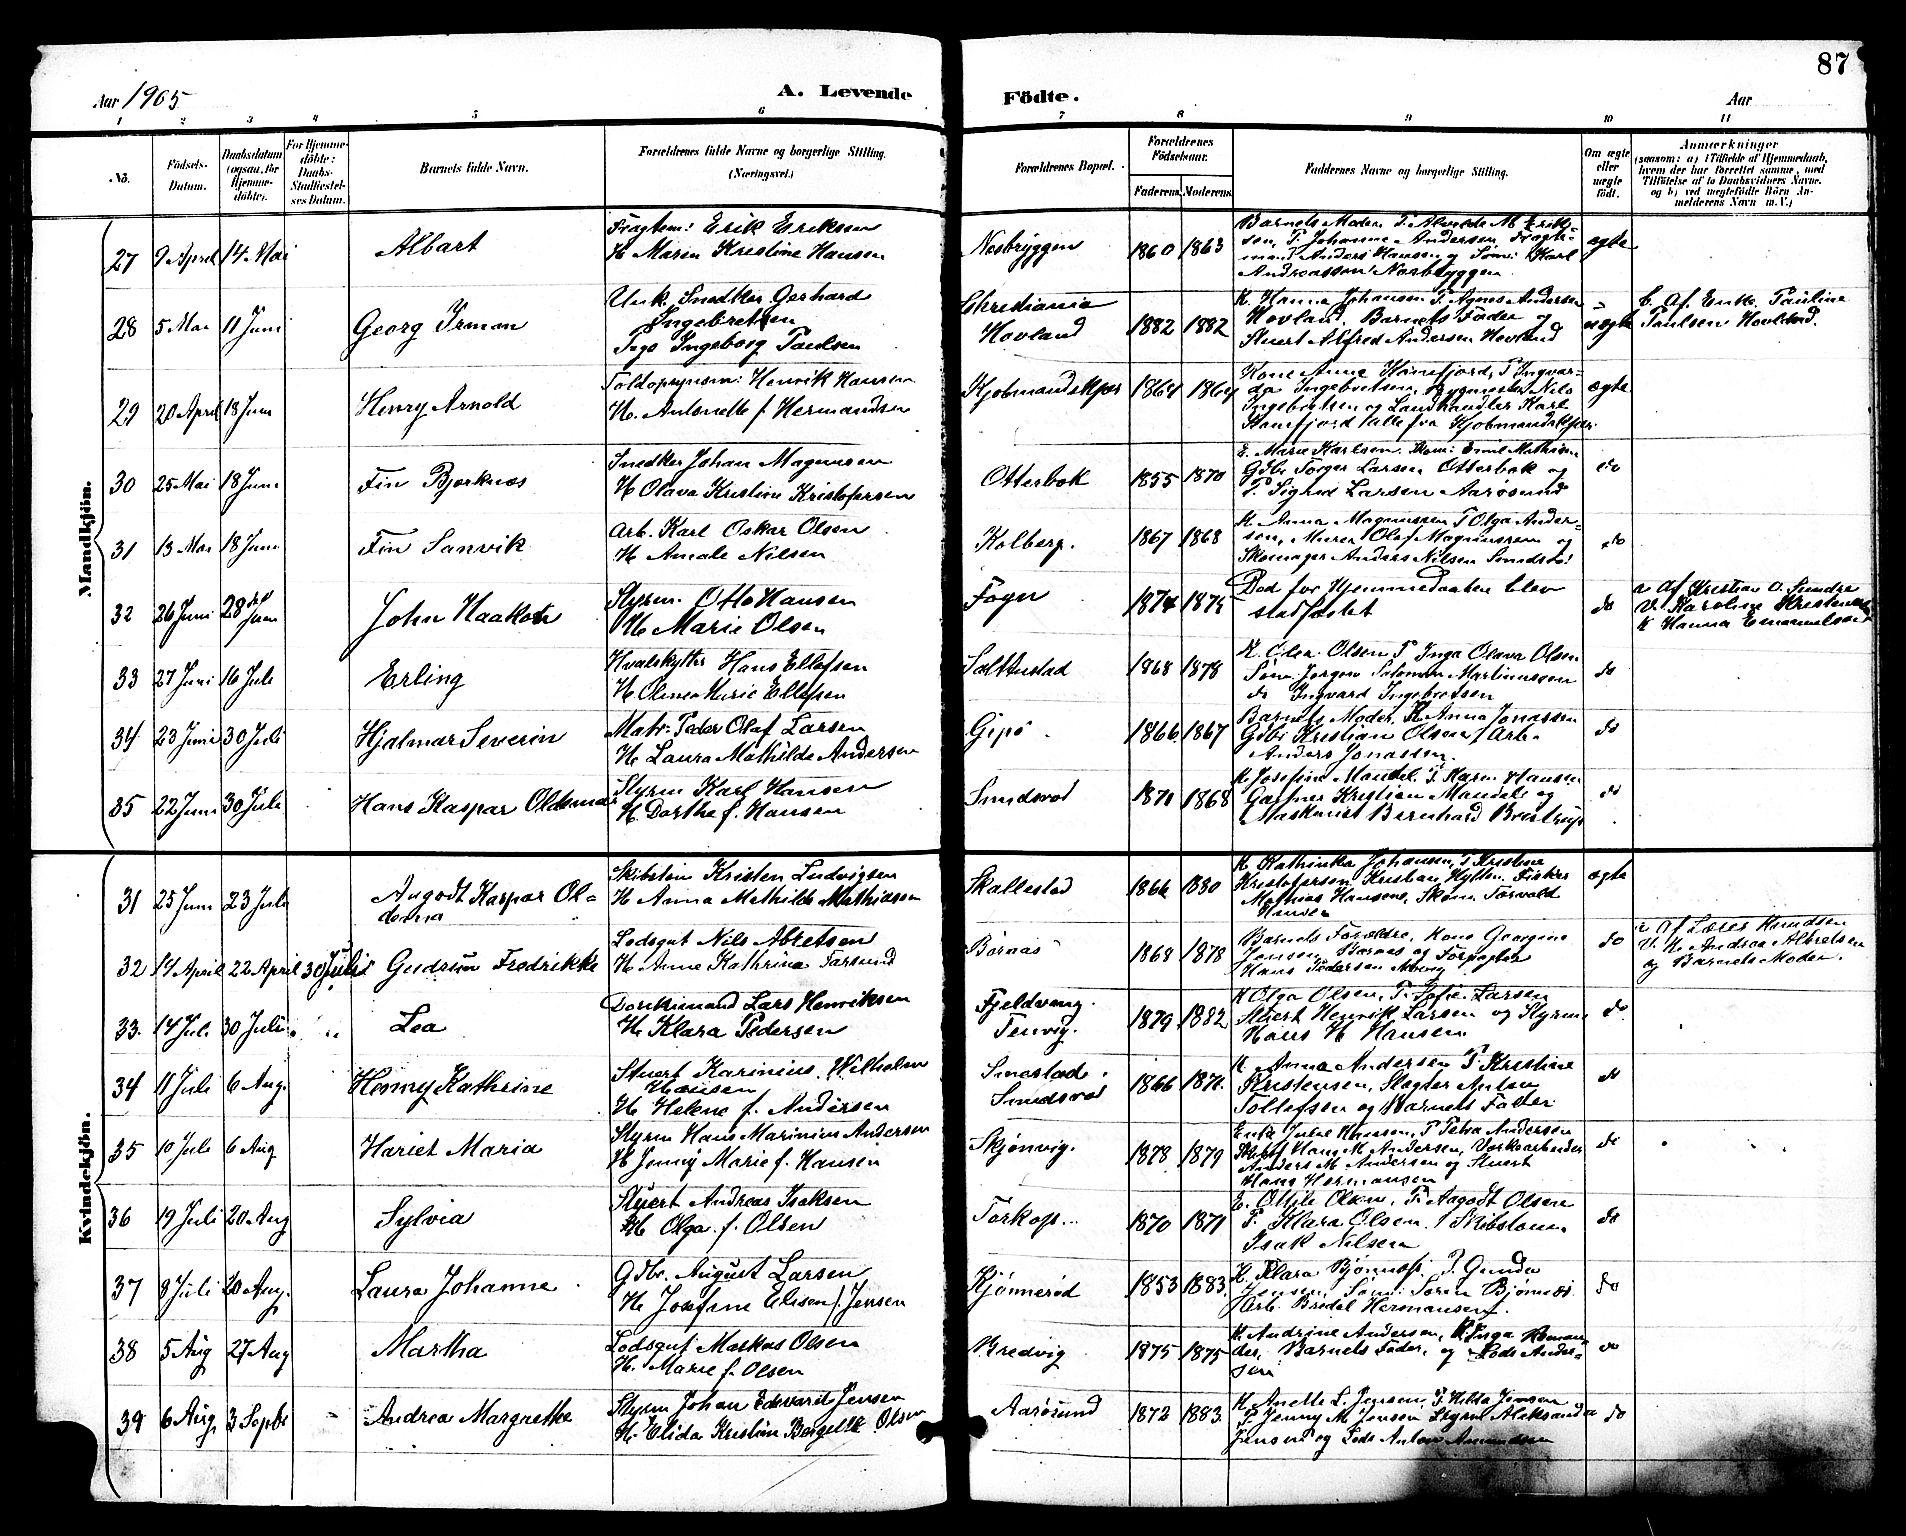 87
Aar 1905
A. Levende Födte.
Aar
1 2 3 4 5 6 7 8 9 10 11
No.
Födsels-
Datum.
Daabsdatum
(ogsaa for
Hjemme-
döbte).
For Hjemme-
döbte:
Daabs-
Stadfæstel-
ses Datum.
Barnets fulde Navn.
Forældrenes fulde Navne og borgerlige Stilling.
(Næringsvei.)
Forældrenes Bopæl.
Forældrenes
Födselsaar.
Faderens. Moderens.
Faddernes Navne og borgerlige Stilling.
Om ægte
eller
uægte
födt.
Anmærkninger
(saasom: a) i Tilfælde af Hjemmedaab,
hvem der har forrettet samme, med
Tilföielse af to Daabsvidners Navne.
og b) ved uægtefödte Börn An-
melderens Navn m. V.)
Mandkjön.
27 9 April 14 Mai Albart
Fragtem: Erik Eriksen
H Maren Kristine Hansen
Nesbryggen 1860 1863
Barnets Moder P. Alvilde M Erik-
sen, P. Johanne Andersen, Fragte-
mand Anders Hansen og Søm: Karl
Andreassen Nesbryggen
ægte
28 5 Mai 11 Juni Georg Irman
Unk. Snedker Gerhard
Ingebretsen
Pige Ingeborg Paulsen
Christiania
Hovland 1882 1882
K. Hanna Johansen P. Agnes Andersen
Hovland, Barnets Fader og
Stuert Alfred Andersen Hovland
uægte
b. Af Enke Pauline
Paulsen Hovland.
29 20 April 18 Juni Henry Arnold
Toldopsynsm: Henrik Hansen
H. Antonette f. Hermandsen
Kjøbmandskjær 1864 1864
Kone Anna Hanefjord, P Ingvar-
da Ingebretsen, Bygmester Nils
Ingebretsen og Landhandler Karl
Hanefjord alle fra Kjøbmandskjær
ægte
30 25 Mai 18 Juni Fin Bjerknes
Snedker Johan Magnusen
H Olava Kristine Kristofersen
Otterbæk 1855 1870
E. Marie Karlsen. Skom: Emil Mathisen
Gdbr Torger Larsen Otterbæk og
P. Sigrid Larsen Aarøsund
do
31 13 Mai 18 Juni Fin Sanvik
Arb. Karl Oskar Olsen
H Amale Nilsen
Kolberg. 1867 1868
K Anna Magnussen P Olga Ander-
sen, Murer Olaf Magnussen og
Skomager Anders Nilsen Smidsrød
do
32 26 Juni 28 Juni John Haakon
Styrm. Otto Hansen
H Marie Olsen
Føyn 1874 1875
Død før Hjemmedaaben blev
stadfæstet
do
a Af Kristian O. Sundre
V. Karoline Kristensen
K Hanna Emanuelsen
33 27 Juni 16 Juli Erling
Hvalskytter Hans Ellefsen
H Oline Marie Ellefsen
Sættestad 1868 1878
K. Olsen P Inga Olava Olsen
Søm Jørgen Salomon Martinussen
do Ingvard Ingebretsen
do
34 23 Juni 30 Juli Hjalmar Severin
Matr: Peder Olaf Larsen
H Laura Mathilde Andersen
Gipø 1866 1867
Barnets Moder, K Anna Jonassen
Gdbr Kristian Olsen Arb.
Anders Jonassen.
do
35 22 Juni 30 Juli Hans Kaspar Oldemar
Styrm Karl Hansen
H. Dorthe f. Hansen
Smidsrød 1870 1868
K Josefine Mandal, P. Karen Hansen
Gartner Kristian Mandal og
Maskinist Bernhard Brostrup
do
Kvindekjön.
31 25 Juni 23 Juli Aagodt Kaspar Ol-
dema
Skibstøm Kristen Ludvigsen
H Anna Mathilde Mathiasen
Skallestad 1866 1880
K Kathinka Johansen, P. Kristine
Kristofersen, Kristian Hytten Fisker
Mathias Hansen, Skom. Torvald
Hansen
ægte
32 14 April 22 April 30 Juli Gudrun Fredrikke
Lodsgut Nils Abretsen
H Anne Kathrine Tarsund
Børnæs 1868 1878
Barnets Forældre, Kone Georgine
Jensen Børnæs og Forpagter
Hans Pedersen
do
a Af Lærer Knudtsen
V. K. Andrea Albretsen
og Barnets Moder.
33. 14 Juli 30 Juli Lea
Donkimand Lars Henriksen
H. Klara Pedersen
Fjeldvang
Tenvig. 1879 1882
K Olga Olsen, P. Sofie Larsen
Stuert Henrik Larsen og Styrm
Hans H Hansen
do
34 11 Juli 6 Aug. Henny Kathrine
Stuert Karinius Wilhelm
Hansen
H. Helene f. Andersen
Smestad
Smidsrød 1866 1871.
K Anna Andersen P. Kristine
Kristensen, Slagter Anton
Tollefsen og Barnets Fader
do
35 10 Juli 6 Aug Hariet Maria
Styrm Hans Marinius Andersen
H Jenny Marie f. Hansen
Skjønvig. 1878 1879
Enk Julie Hansen, P Petra Andersen
Hans M Andersen, Værksarbeider
Anders M. Andersen og Stuert
Hans Hermansen
do
36 19 Juli 20 Aug Sylvia
Styert Andreas Isaksen
H Olga f. Olsen
Torkop. 1870 1871
E. Otilie Olsen, P. Aagodt Olsen
P. Klara Olsen, Skibstøm.
Isak Nilsen
do
37 8 Juli 20 Aug. Laura Johanne
Gdbr. August Larsen
H Josefine Elisen f. Jensen
Kjønnerød 1853 1883.
K. Klara Bjønnes, P. Gunda
Jensen, Søm: Søren Bjønnes
Arb. Bredal Hermansen
do
38 5 Aug 27 Aug Martha
Lodsgut Markus Olsen
H. Marie f. Olsen
Bredvig 1875 1875
K. Andrine Andersen, K. Inga
Barnets Fader, og Lods Ander-
sen
do
39 6 Aug 3 Septbr Andrea Margrethe
Styrm Johan Edevardt Jensen
H. Elida Kristine Bergette Olsen
Aarøsund 1872 1883.
K Anette L Jensen, P. Hilda Jensen
P Jenny M Jensen Styrm Aleksander
Jensen og Lods Anton Amundsen
do